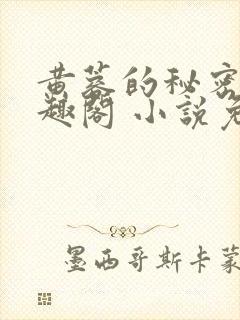 黄蓉的秘密
趣阁 小说免
墨西哥斯卡蒙